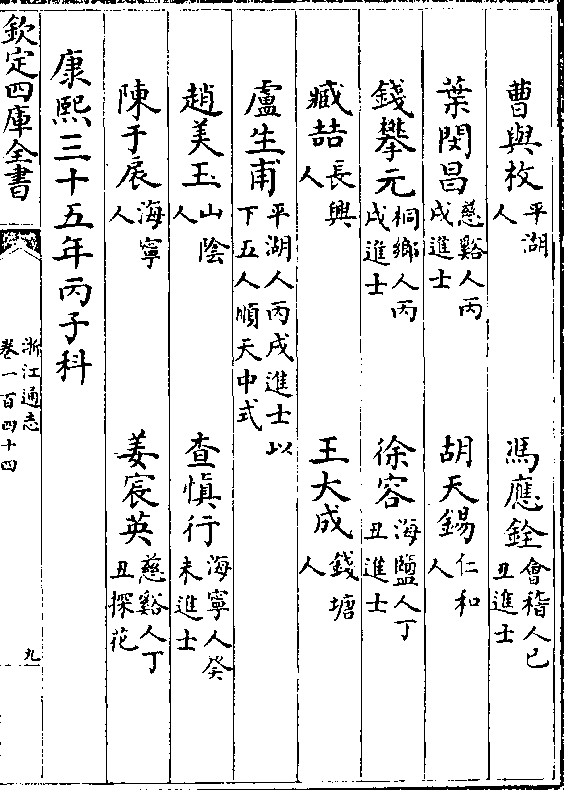 曹與枚平湖人　馮應銓會稽人已丑進士
葉閔昌慈谿人丙戌進士　胡天錫仁和人
錢攀元桐鄉人丙戌進士　徐容海鹽人丁丑進士
臧喆長興人　王大成錢塘人
盧生甫平湖人丙戌進士以下五人順天中式
趙美玉山陰人　查愼行海寧人癸未進士
陳于展海寧人　姜宸英慈谿人丁丑探花
康熙三十五年丙子科
欽定四庫全書
浙江通志
卷一百四十四
九